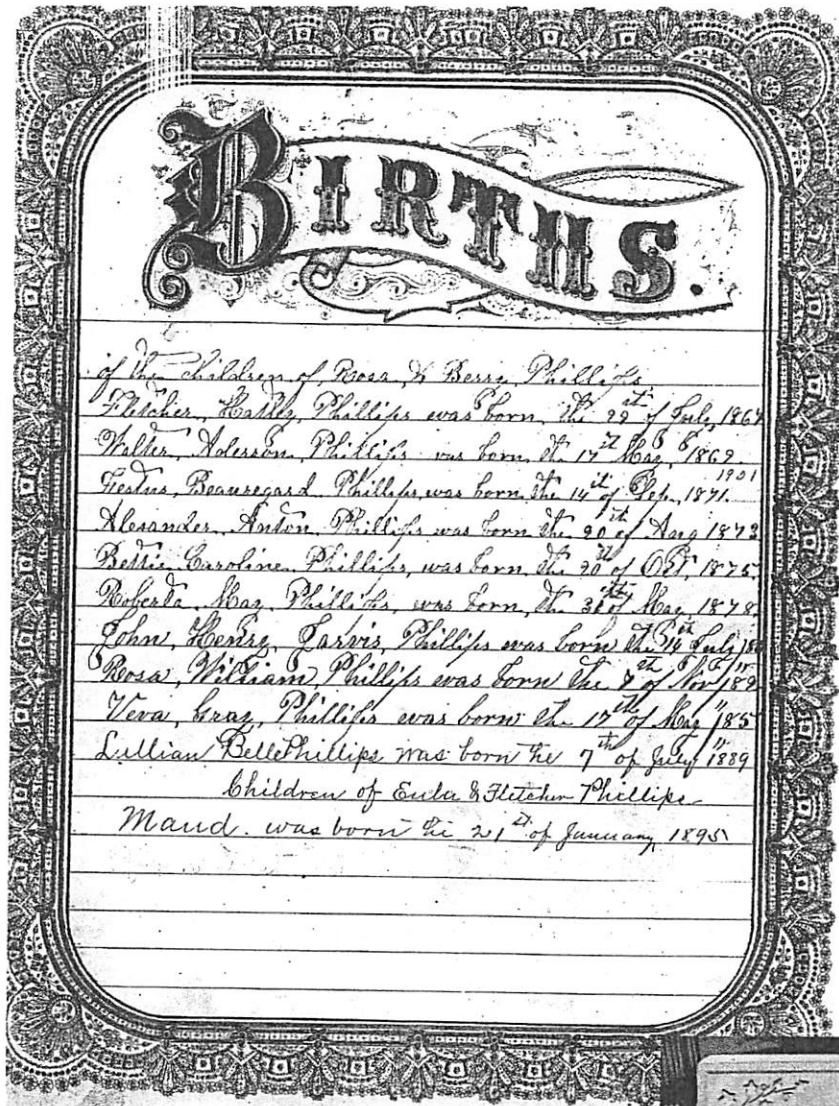 BIRTHS.
of the children of Rosa & Berry Phillips
Fletcher, Hatley, Phillips was born the 22 of July, 1867
Walter, Aderson, Phillips was born the 17th May, 1869
1901
Festus, Beauregard Phillips, was born the 14th of Sep, 1871.
Alexander, Anton, Phillips was born the 20th of Aug 1873
Bettie, Caroline, Phillips, was born, the 20th of Oct, 1875.
Roberta, May, Phillips, was born, the 31st of May, 1878.
John, Henry, Jarvis, Phillips was born the 14th July 18
Rosa, William Phillips was born the 7th of Nov
Veva, Gray, Phillips was born the 17th of May 185
Lillian Belle Phillips was born the 7th of July 1889
Children of Eula & Fletcher Phillips
Maud. was born the 21st of January, 1895